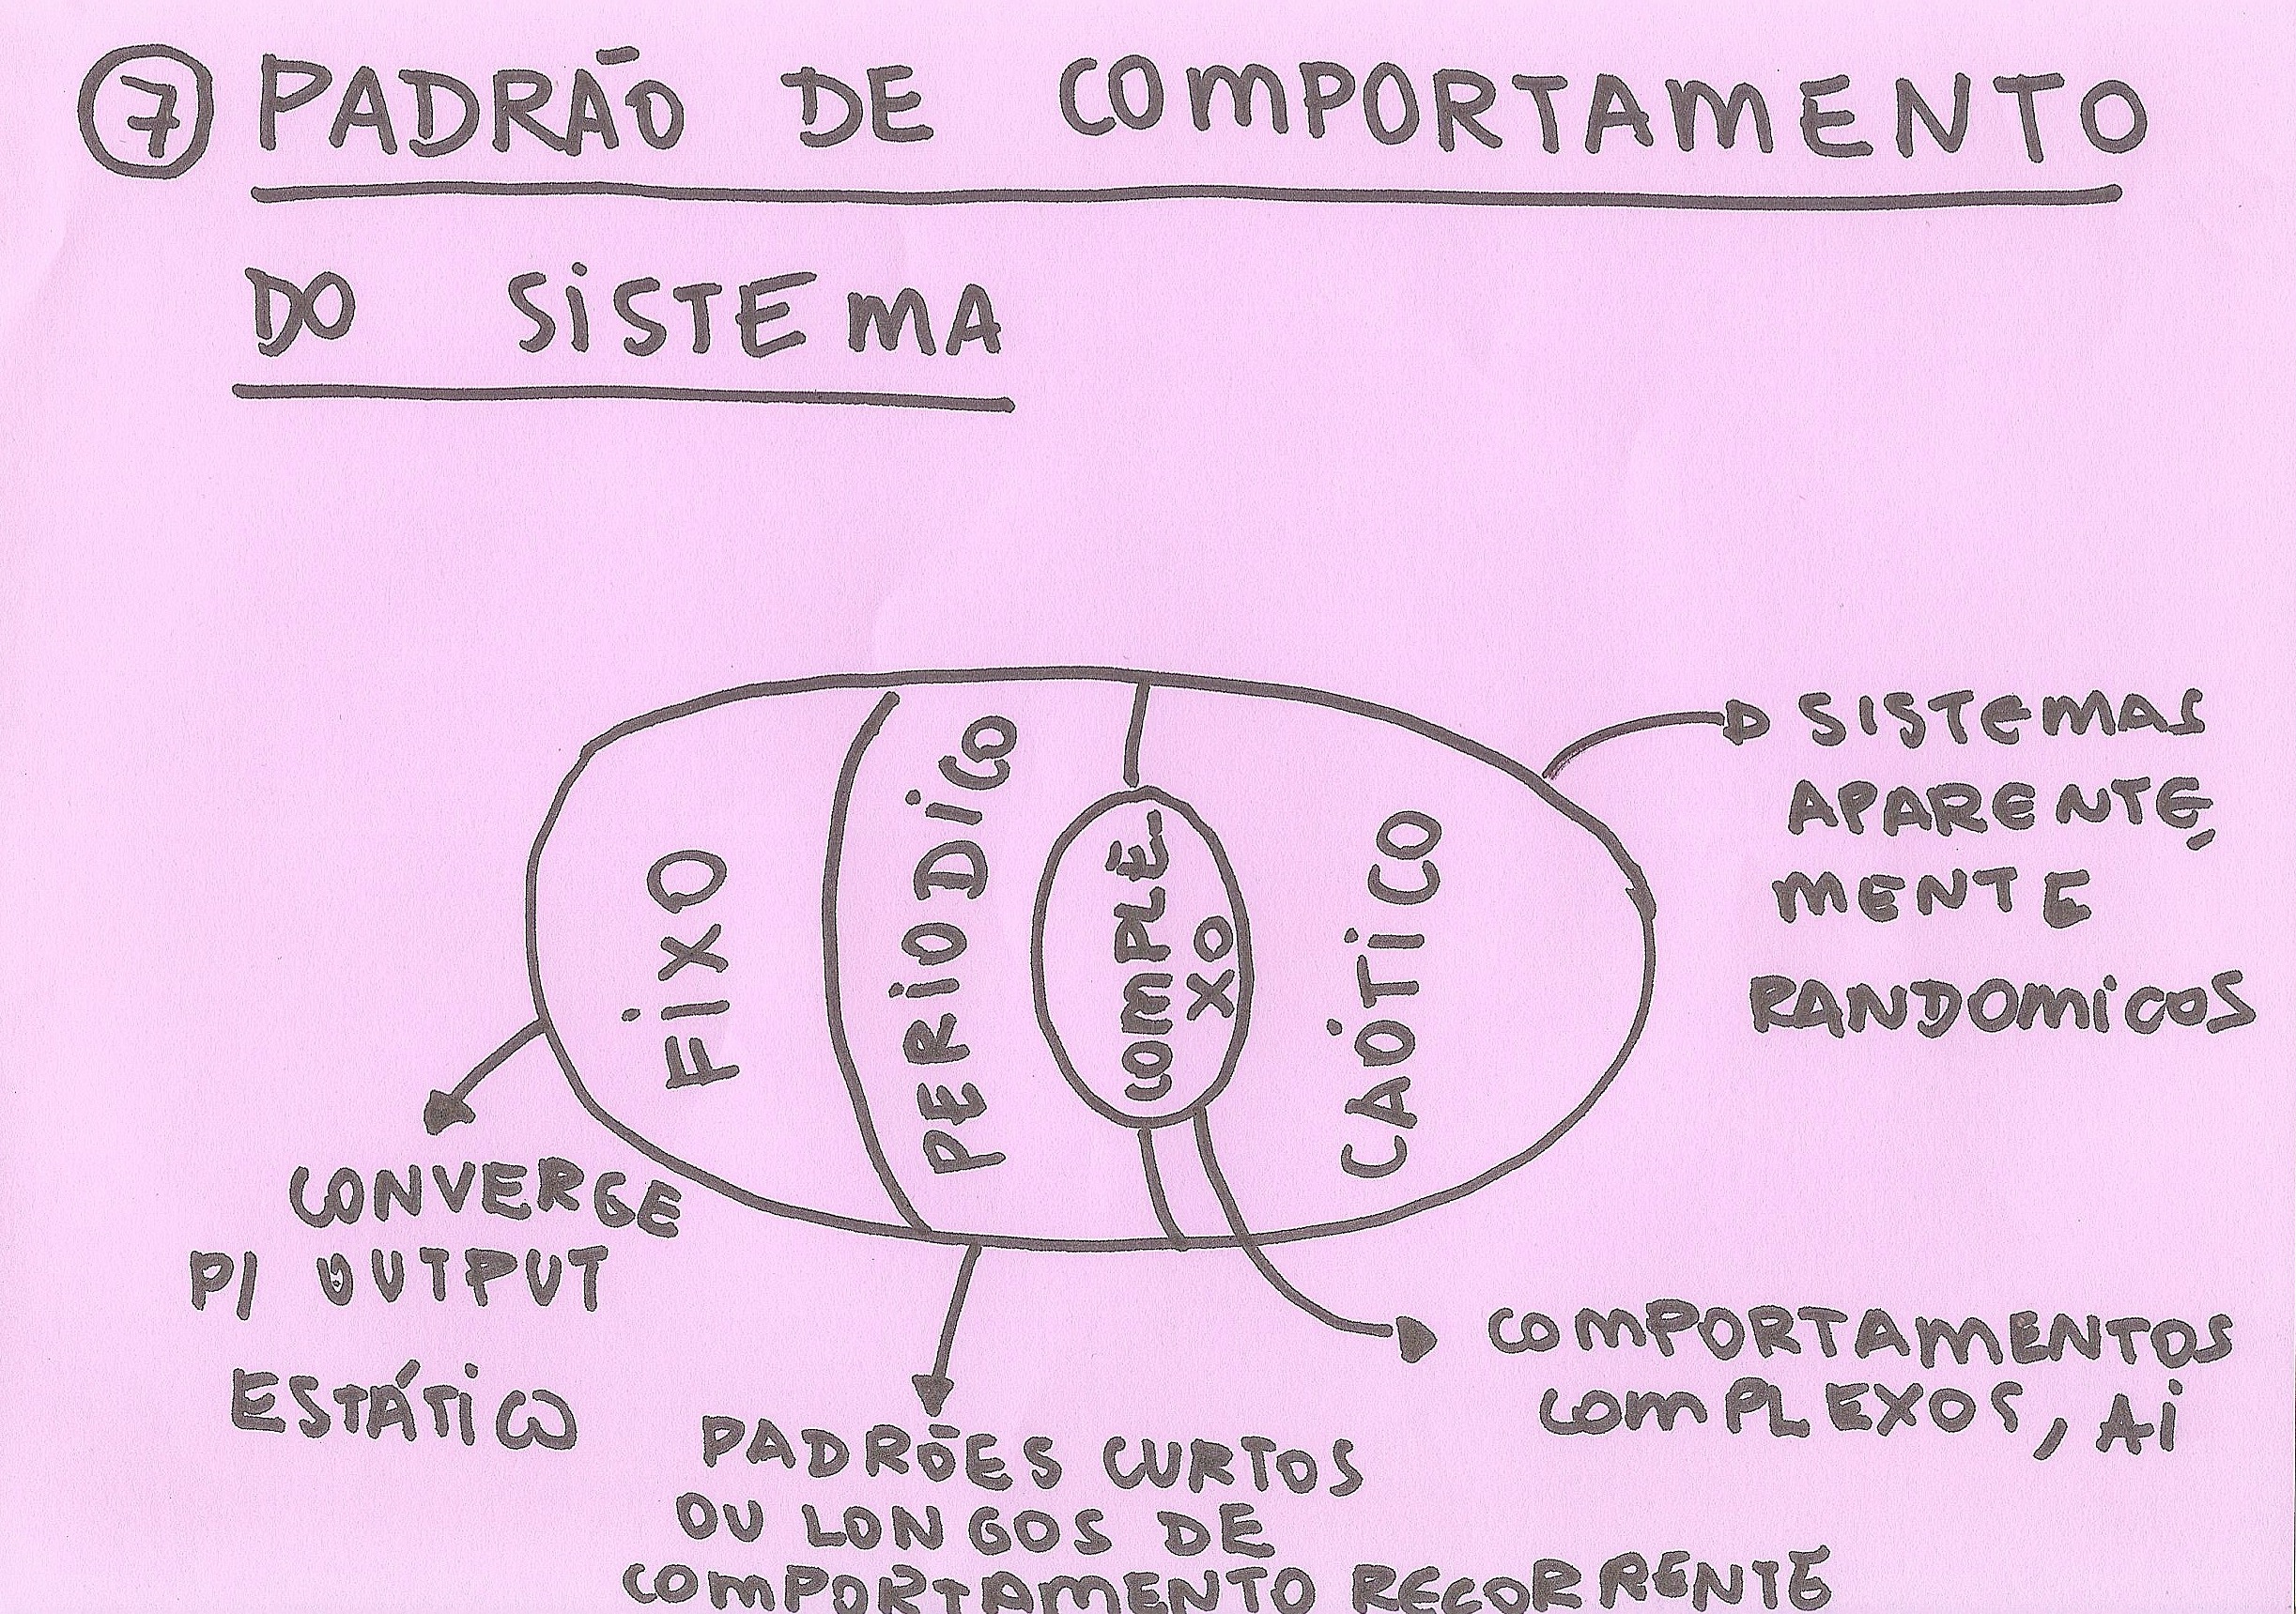 7 PADRÃO DE COMPORTAMENTO
DO SISTEMA
FIXO
PERIODICO
COMPLE-
XO
CAÓTICO
SISTEMAS
APARENTE-
MENTE
RANDOMICOS
CONVERGE
P/ OUTPUT
ESTÁTICO
PADRÕES CURTOS
OU LONGOS DE
COMPORTAMENTO RECORRENTE
COMPORTAMENTOS
COMPLEXOS, AI